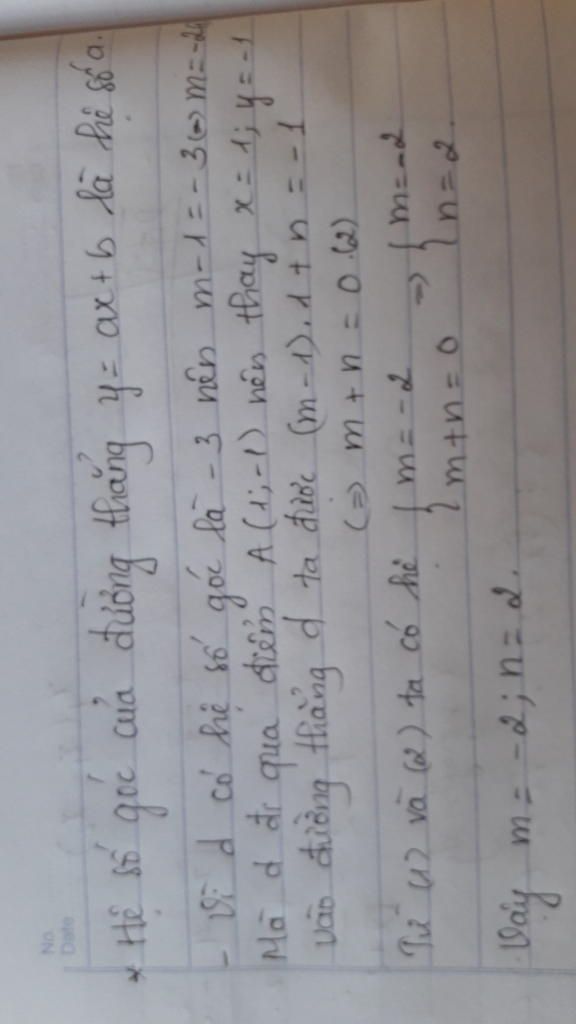 No.
Date
* Hệ số góc của đường thẳng y = ax + b là hệ số a.
- Vì d có hệ số góc là -3 nên m - 1 = -3 (=) m = -2
Mà d đi qua điểm A(1;-1) nên thay x = 1; y = -1
vào đường thẳng d ta được (m - 1). 1 + n = -1
(=) m + n = 0 (2)
Từ (1) và (2) ta có hệ { m = -2 => { m = -2
{ m + n = 0 { n = 2.
Vậy m = -2; n = 2.